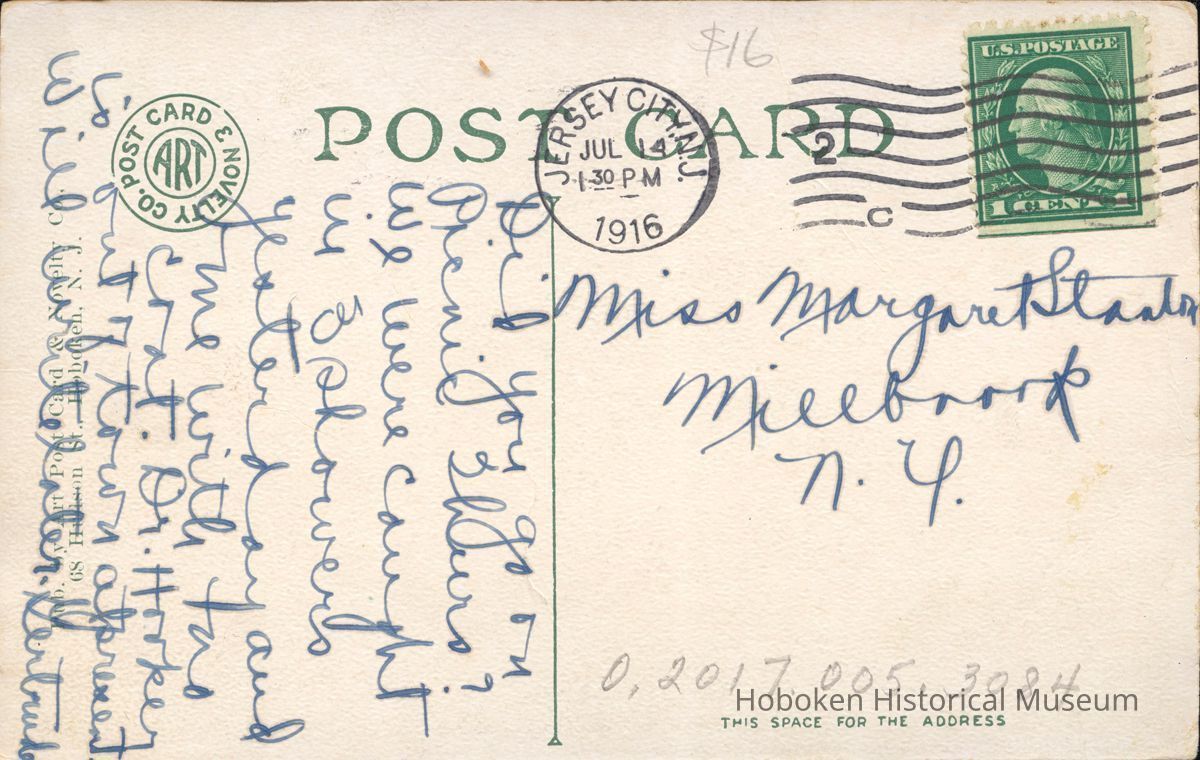 $16
U.S. POSTAGE
POST CARD
JERSEY CITY, N.J.
JUL 14
1 30 PM
1916
2
C
1 CENT
POST CARD & NOVELTY CO.
ART
Pub. by Art Post Card & Novelty Co.
68 Hudson St., Hoboken, N. J.
Did you go on
Picnic Thurs?
We were caught
in 3 showers
yesterday and
me with no
coat. Dr. Hooker
is out of town at present
Will write later. Gertrude
Miss Margaret Stanton
Millbrook
N. Y.
0.2017.005.3084
Hoboken Historical Museum
THIS SPACE FOR THE ADDRESS